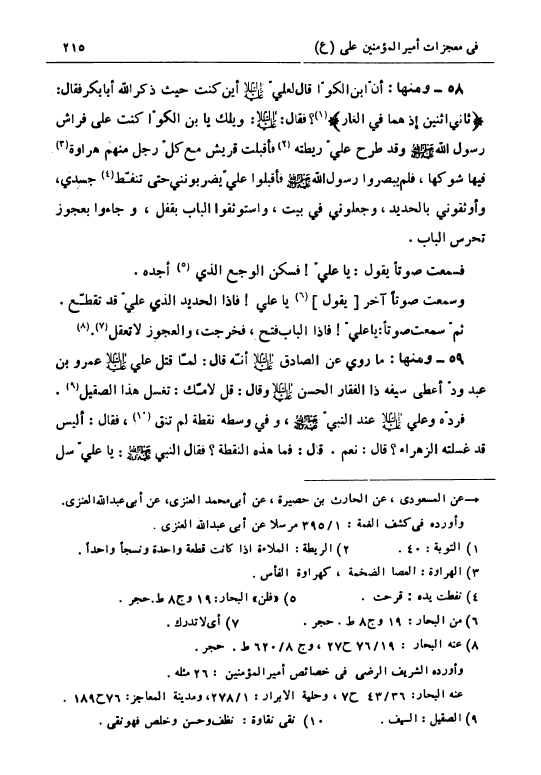 فى معجزات أميرالمؤمنين على (ع) ٢١٥
٥٨ ـ ومنها : أنّ ابن الكوّا قال لعليّ عليه السلام أين كنت حيث ذكر الله أبابكر فقال:
﴿ثاني اثنين إذ هما في الغار﴾(١)؟ فقال: عليه السلام: ويلك يا بن الكوّا كنت على فراش
رسول الله صلى الله عليه وآله وقد طرح عليّ ريطته (٢) فأقبلت قريش مع كلّ رجل منهم هراوة(٣)
فيها شوكها ، فلم يبصروا رسول الله صلى الله عليه وآله فأقبلوا عليّ يضربونني حتى تنفّط(٤) جسدي،
وأوثقوني بالحديد ، وجعلوني في بيت ، واستوثقوا الباب بقفل ، و جاءوا بعجوز
تحرس الباب .
فسمعت صوتاً يقول : يا عليّ ! فسكن الوجع الذي (٥) أجده .
وسمعت صوتاً آخر [ يقول ] (٦) يا علي ! فاذا الحديد الذي عليّ قد تقطّع .
ثمّ سمعت صوتاً: ياعليّ! فاذا الباب فتح ، فخرجت، والعجوز لاتعقل(٧).(٨)
٥٩ ـ ومنها: ما روي عن الصادق عليه السلام أنّه قال: لمّا قتل علي عليه السلام عمرو بن
عبد ودّ أعطى سيفه ذا الفقار الحسن عليه السلام وقال: قل لامّك : تغسل هذا الصقيل(٩) .
فردّه وعلي عليه السلام عند النبيّ صلى الله عليه وآله ، و في وسطه نقطة لم تنق (١٠) ، فقال : أليس
قد غسلته الزهراء ؟ قال : نعم . قال : فما هذه النقطة ؟ فقال النبي صلى الله عليه وآله : يا عليّ سل
← عن المسعودى ، عن الحارث بن حصيرة ، عن أبى محمد العنزى، عن أبى عبدالله العنزى.
وأورده فى كشف الغمة : ٣٩٥/١ مرسلا عن أبى عبدالله العنزى .
١) التوبة : ٤٠ . ٢) الريطة : الملاءة اذا كانت قطعة واحدة ونسجاً واحداً.
٣) الهراوة : العصا الضخمة ، كهراوة الفأس .
٤) نفطت يده : قرحت . ٥) «فلن» البحار: ١٩ وج٨ ط. حجر .
٦) من البحار : ١٩ وج٨ ط . حجر . ٧) أى لاتدرك .
٨) عنه البحار : ٧٦/١٩ ح٢٧ ، وج ٦٢٠/٨ ط . حجر .
وأورده الشريف الرضى فى خصائص أميرالمؤمنين : ٢٦ مثله .
عنه البحار: ٤٣/٣٦ ح٧ ، وحلية الابرار : ٢٧٨/١، ومدينة المعاجز: ٧٦ح١٨٩ .
٩) الصقيل : السيف . ١٠) نقى نقاوة : نظف وحسن وخلص فهونقى .